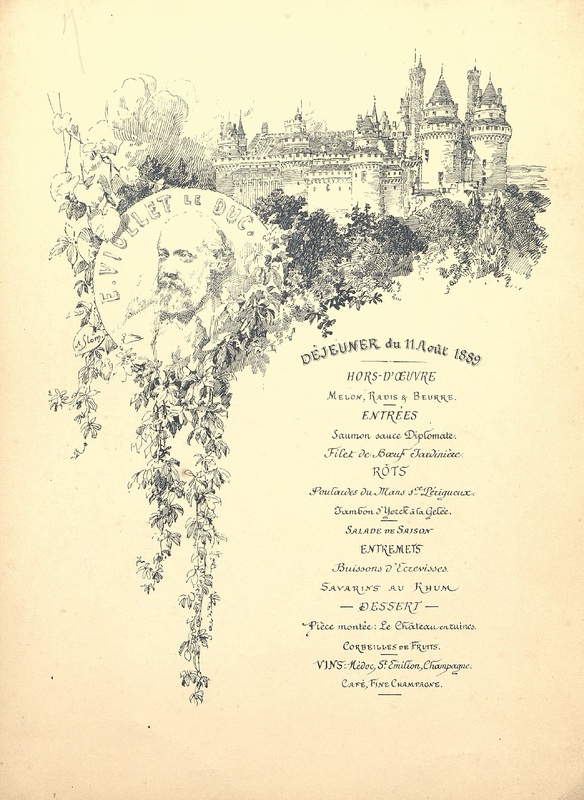 E. VIOLLET LE DUC.
DÉJEUNER du 11 Août 1889
HORS-D'ŒUVRE
MELON, RADIS & BEURRE.
ENTRÉES
Saumon sauce Diplomate.
Filet de Bœuf Jardinière.
RÔTS
Poulardes du Mans sce Périgueux.
Jambon d'Yorck à la Gelée.
SALADE DE SAISON
ENTREMETS
Buissons d'Ecrevisses.
SAVARINS AU RHUM
— DESSERT —
Pièce montée: Le Château en ruines.
CORBEILLES DE FRUITS.
VINS: Médoc, St Emilion, Champagne.
CAFÉ, FINE CHAMPAGNE.